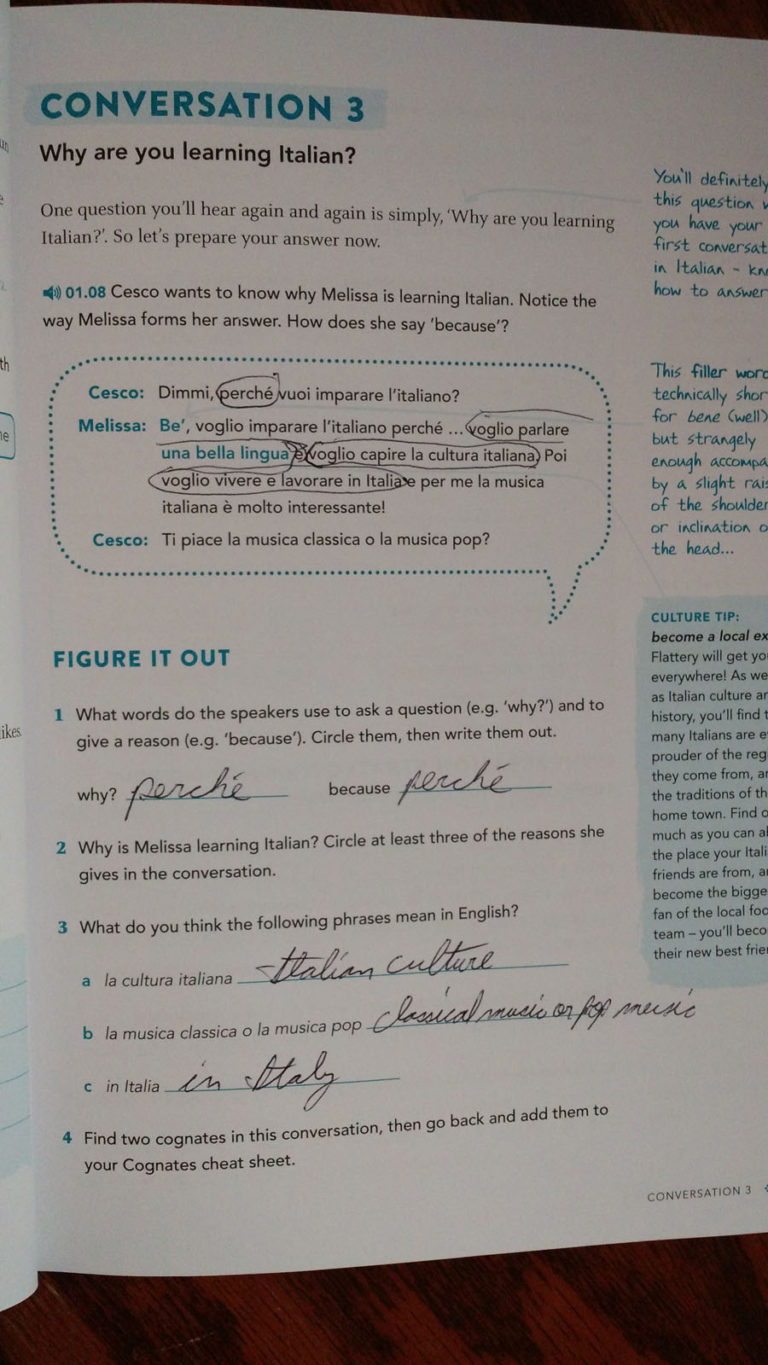 CONVERSATION 3
Why are you learning Italian?
One question you'll hear again and again is simply, 'Why are you learning
Italian?'. So let's prepare your answer now.
01.08 Cesco wants to know why Melissa is learning Italian. Notice the
way Melissa forms her answer. How does she say 'because'?
Cesco: Dimmi, perché vuoi imparare l'italiano?
Melissa: Be', voglio imparare l'italiano perché ... voglio parlare
una bella lingua e voglio capire la cultura italiana. Poi
voglio vivere e lavorare in Italia e per me la musica
italiana è molto interessante!
Cesco: Ti piace la musica classica o la musica pop?
FIGURE IT OUT
1 What words do the speakers use to ask a question (e.g. 'why?') and to
give a reason (e.g. 'because'). Circle them, then write them out.
why? perché because perché
2 Why is Melissa learning Italian? Circle at least three of the reasons she
gives in the conversation.
3 What do you think the following phrases mean in English?
a la cultura italiana Italian culture
b la musica classica o la musica pop classical music or pop music
c in Italia in Italy
4 Find two cognates in this conversation, then go back and add them to
your Cognates cheat sheet.
CONVERSATION 3
You'll definitely
this question
you have your
first
in Italian -
how to answer
This filler word
technically
for bene (well)
but strangely
enough
by a slight
of the
or inclination
the head...
CULTURE TIP:
become a local
Flattery will get
everywhere! As
as Italian culture
history, you'll find
many Italians are
prouder of the
they come from,
the traditions of
home town. Find
much as you can
the place your
friends are from,
become the
fan of the local
team – you'll
their new best